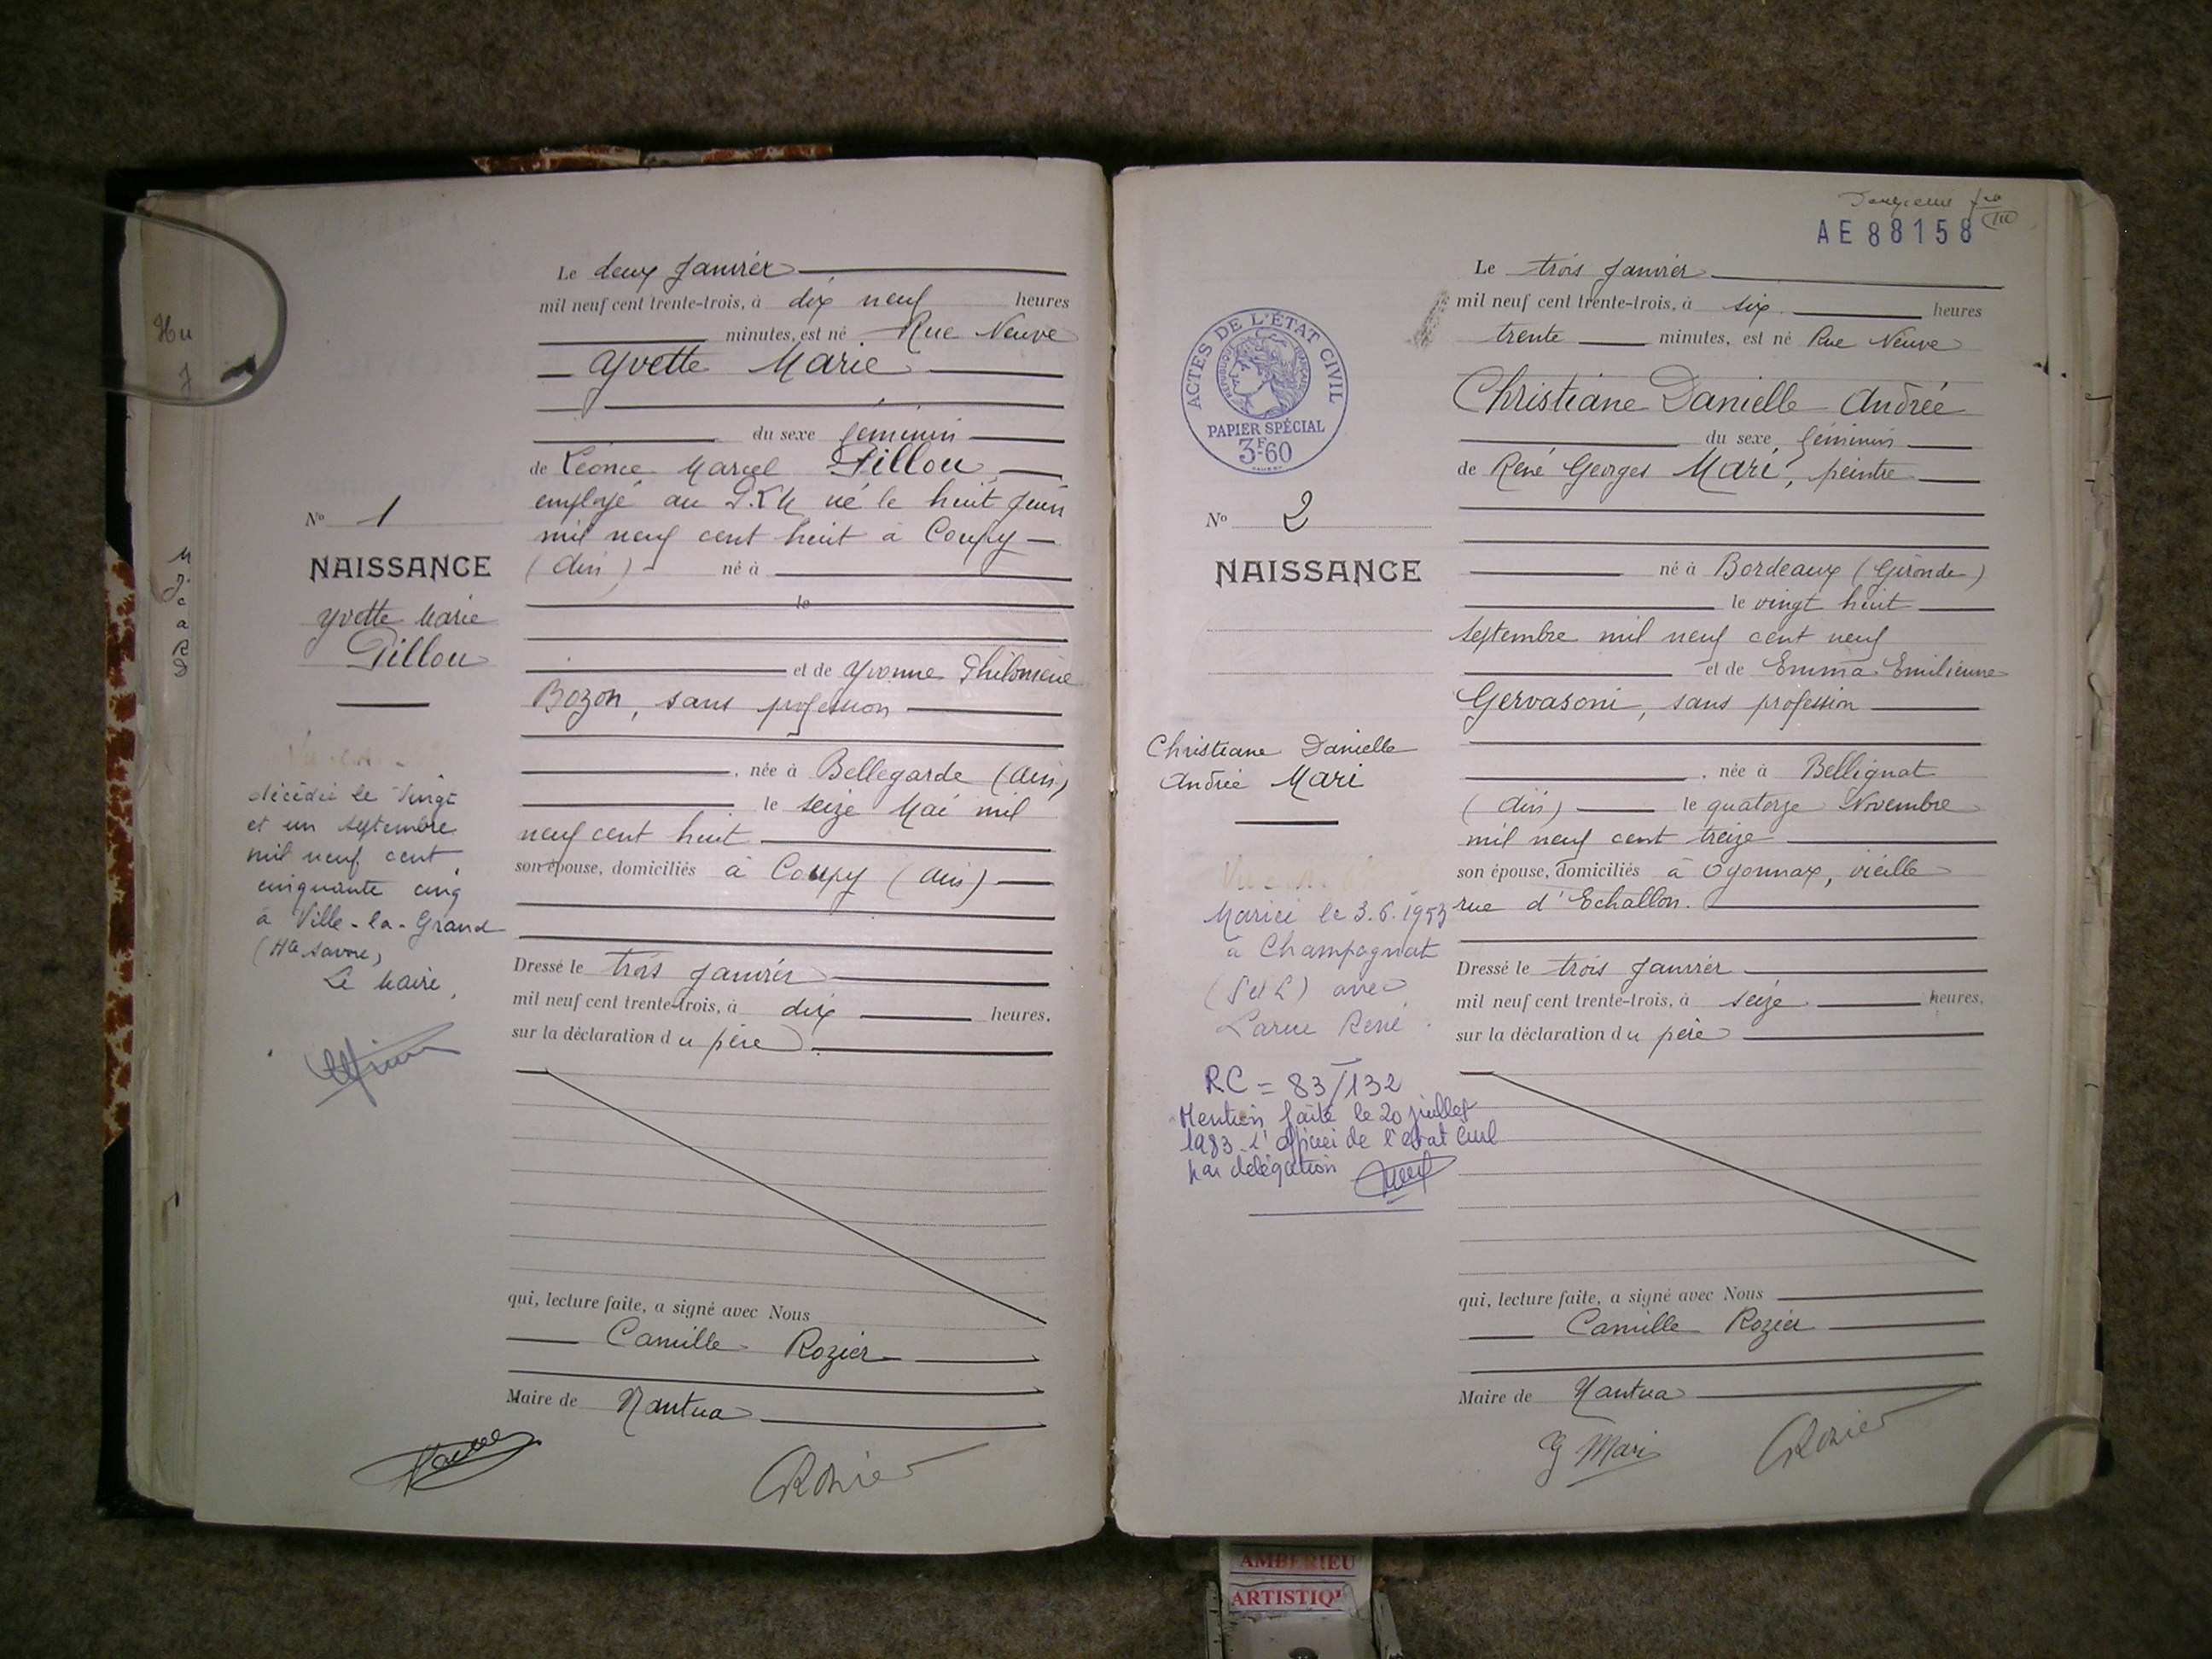 N° 1
NAISSANCE
Yvette Marie
Pillou
décédée le vingt
et un septembre
mil neuf cent
cinquante cinq
à Ville-la-Grand
(Hte Savoie)
Le Maire,
Le deux Janvier
mil neuf cent trente-trois, à dix neuf heures
minutes, est né Rue Neuve
Yvette Marie
du sexe féminin
de Léonce Marcel Pillou,
employé au P.L.M né le huit Juin
mil neuf cent huit à Coupy
(Ain) né à
le
et de Yvonne Philomène
Bozon, sans profession
, née à Bellegarde (Ain)
le seize Mai mil
neuf cent huit
son épouse, domiciliés à Coupy (Ain)
Dressé le trois Janvier
mil neuf cent trente-trois, à dix heures.
sur la déclaration du père
qui, lecture faite, a signé avec Nous
Camille Rozier
Maire de Nantua
CRozier
AE 88158
ACTES DE L'ÉTAT CIVIL
RÉPUBLIQUE FRANÇAISE
PAPIER SPÉCIAL
3F60
N° 2
NAISSANCE
Christiane Danielle
Andrée Mari
Mariée le 3.6.1953
à Champagnat
(S et L) avec
Larue René
RC = 83/132
Mention faite le 20 juillet
1983. L'officier de l'état civil
par délégation
Le trois Janvier
mil neuf cent trente-trois, à six heures
trente minutes, est né Rue Neuve
Christiane Danielle Andrée
du sexe féminin
de René Georges Mari, peintre
né à Bordeaux (Gironde)
le vingt huit
septembre mil neuf cent neuf
et de Emma Emilienne
Gervasoni, sans profession
, née à Bellignat
(Ain) le quatorze Novembre
mil neuf cent treize
son épouse, domiciliés à Oyonnax, vieille
rue d'Echallon.
Dressé le trois Janvier
mil neuf cent trente-trois, à seize heures.
sur la déclaration du père
qui, lecture faite, a signé avec Nous
Camille Rozier
Maire de Nantua
G Mari
CRozier
AMBERIEU
ARTISTIQ